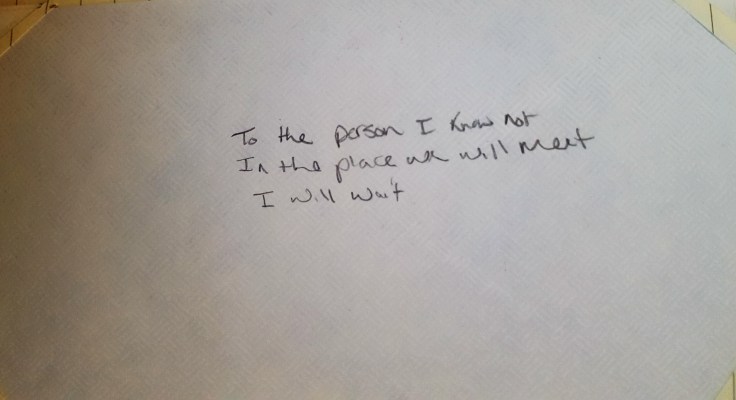 To the person I know not
In the place we will meet
I will wait